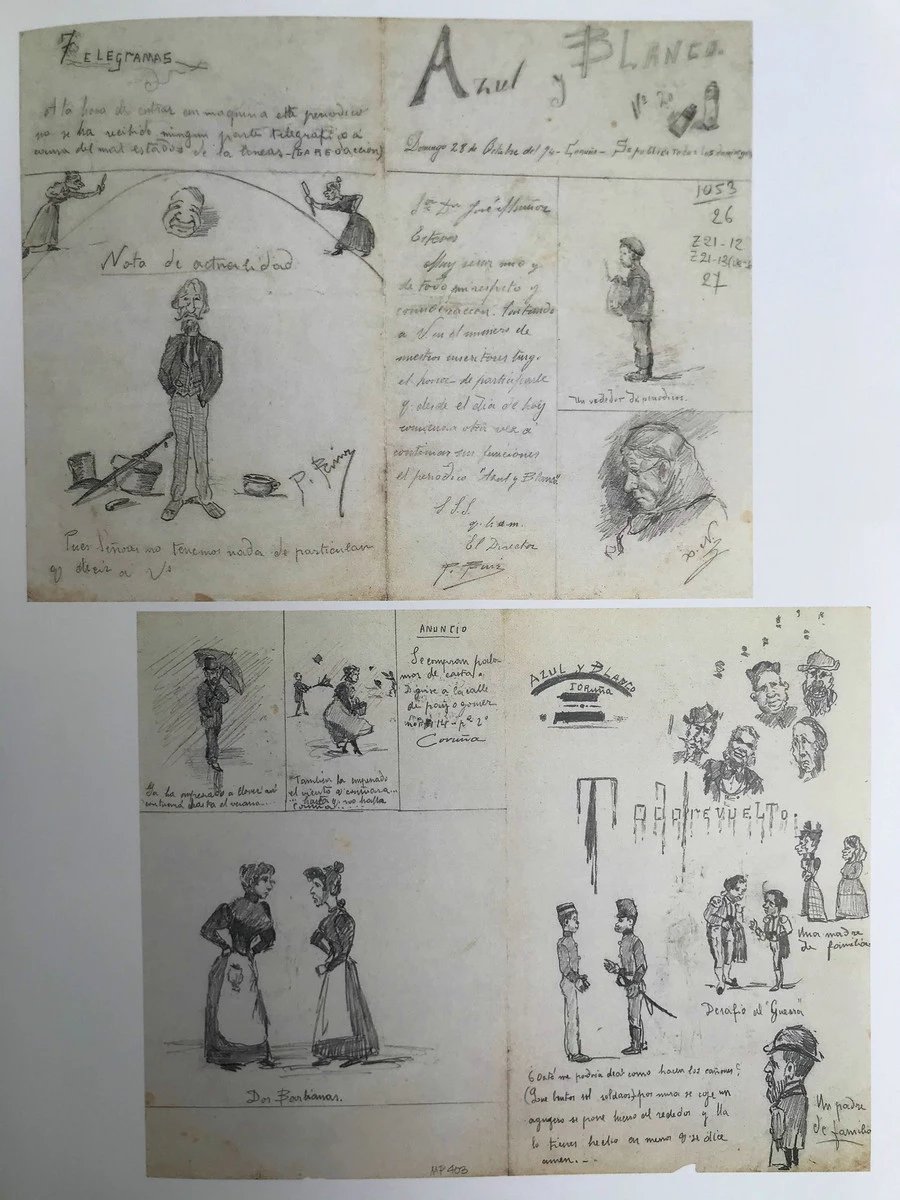 TELEGRAMAS
A la hora de entrar en maquina este periodico
no se ha recibido ningun parte telegrafico a
causa del mal estado de la lineas - (LA REDACCION)
Nota de actualidad
P. Ruiz
Pues Señores no tenemos nada de particular
q decir a Vs
Azul y Blanco.
Nº 2º
Domingo 28 de Octubre del 94 - Coruña - Se publica todos los domingos
Sr Dn José
Esteves
Muy señor mio y
de todo mi respeto y
consideracion. Contando
a V. en el numero de
nuestros suscritores
el honor de participarle
q. desde el dia de hoy
comienza otra vez a
continuar sus funciones
el periodico "Azul y Blanco"
S.S.S.
q. b. s. m.
El Director
P. Ruiz
1053
26
Z 21-12
Z 21-12
27
Un vendedor de periodicos.
Ya ha empezado a llover
hasta el verano...
Tambien ha empezado
el viento y continuara...
hasta q. no halla
Coruña...
ANUNCIO
Se compran palo
mos de casta.
Dirijirse a la calle
de payo gomez
14 - pº 2º
Coruña
Dos Barbianas.
AZUL Y BLANCO
CORUÑA
TODO REVUELTO.
Una madre
de familia
Desafio al "Guerra"
me podria decir como hacen los cañones?
por un
agugero se pone hierro al rededor y lla
lo tienes hecho en menos q. se dice
amen...
Un padre
de familia
MP 403